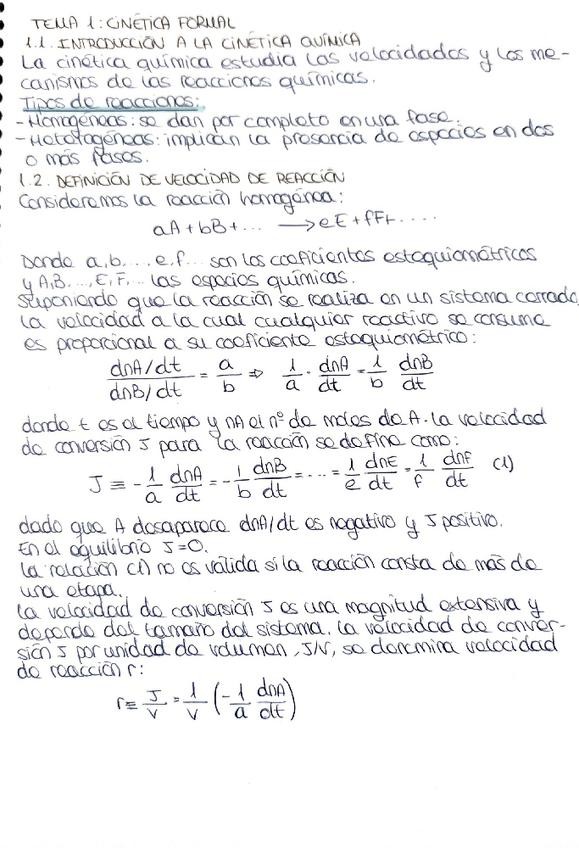 TEMA 1: CINÉTICA FORMAL
1.1. INTRODUCCIÓN A LA CINÉTICA QUÍMICA
La cinética química estudia las velocidades y los me-
canismos de las reacciones químicas.
Tipos de reacciones:
- Homogéneas: se dan por completo en una fase.
- Heterogéneas: implican la presencia de especies en dos
o más fases.
1.2. DEFINICIÓN DE VELOCIDAD DE REACCIÓN
Consideremos la reacción homogénea:
aA + bB + ... ⟶ eE + fF + ....
Donde a, b, ... e, f... son los coeficientes estequiométricos
y A, B, ..., E, F, ... las especies químicas.
Suponiendo que la reacción se realiza en un sistema cerrado,
la velocidad a la cual cualquier reactivo se consume
es proporcional a su coeficiente estequiométrico:
(dnA/dt)/(dnB/dt) = a/b ⇒ 1/a · dnA/dt = 1/b dnB/dt
donde t es el tiempo y nA el nº de moles de A. La velocidad
de conversión J para la reacción se define como:
J ≡ -1/a dnA/dt = -1/b dnB/dt = ... = 1/e dnE/dt = 1/f dnF/dt (1)
dado que A desaparece dnA/dt es negativo y J positivo.
En el equilibrio J=0.
La relación (1) no es válida si la reacción consta de más de
una etapa.
La velocidad de conversión J es una magnitud extensiva y
depende del tamaño del sistema. La velocidad de conver-
sión J por unidad de volumen, J/V, se denomina velocidad
de reacción r:
r ≡ J/V = 1/V (-1/a dnA/dt)